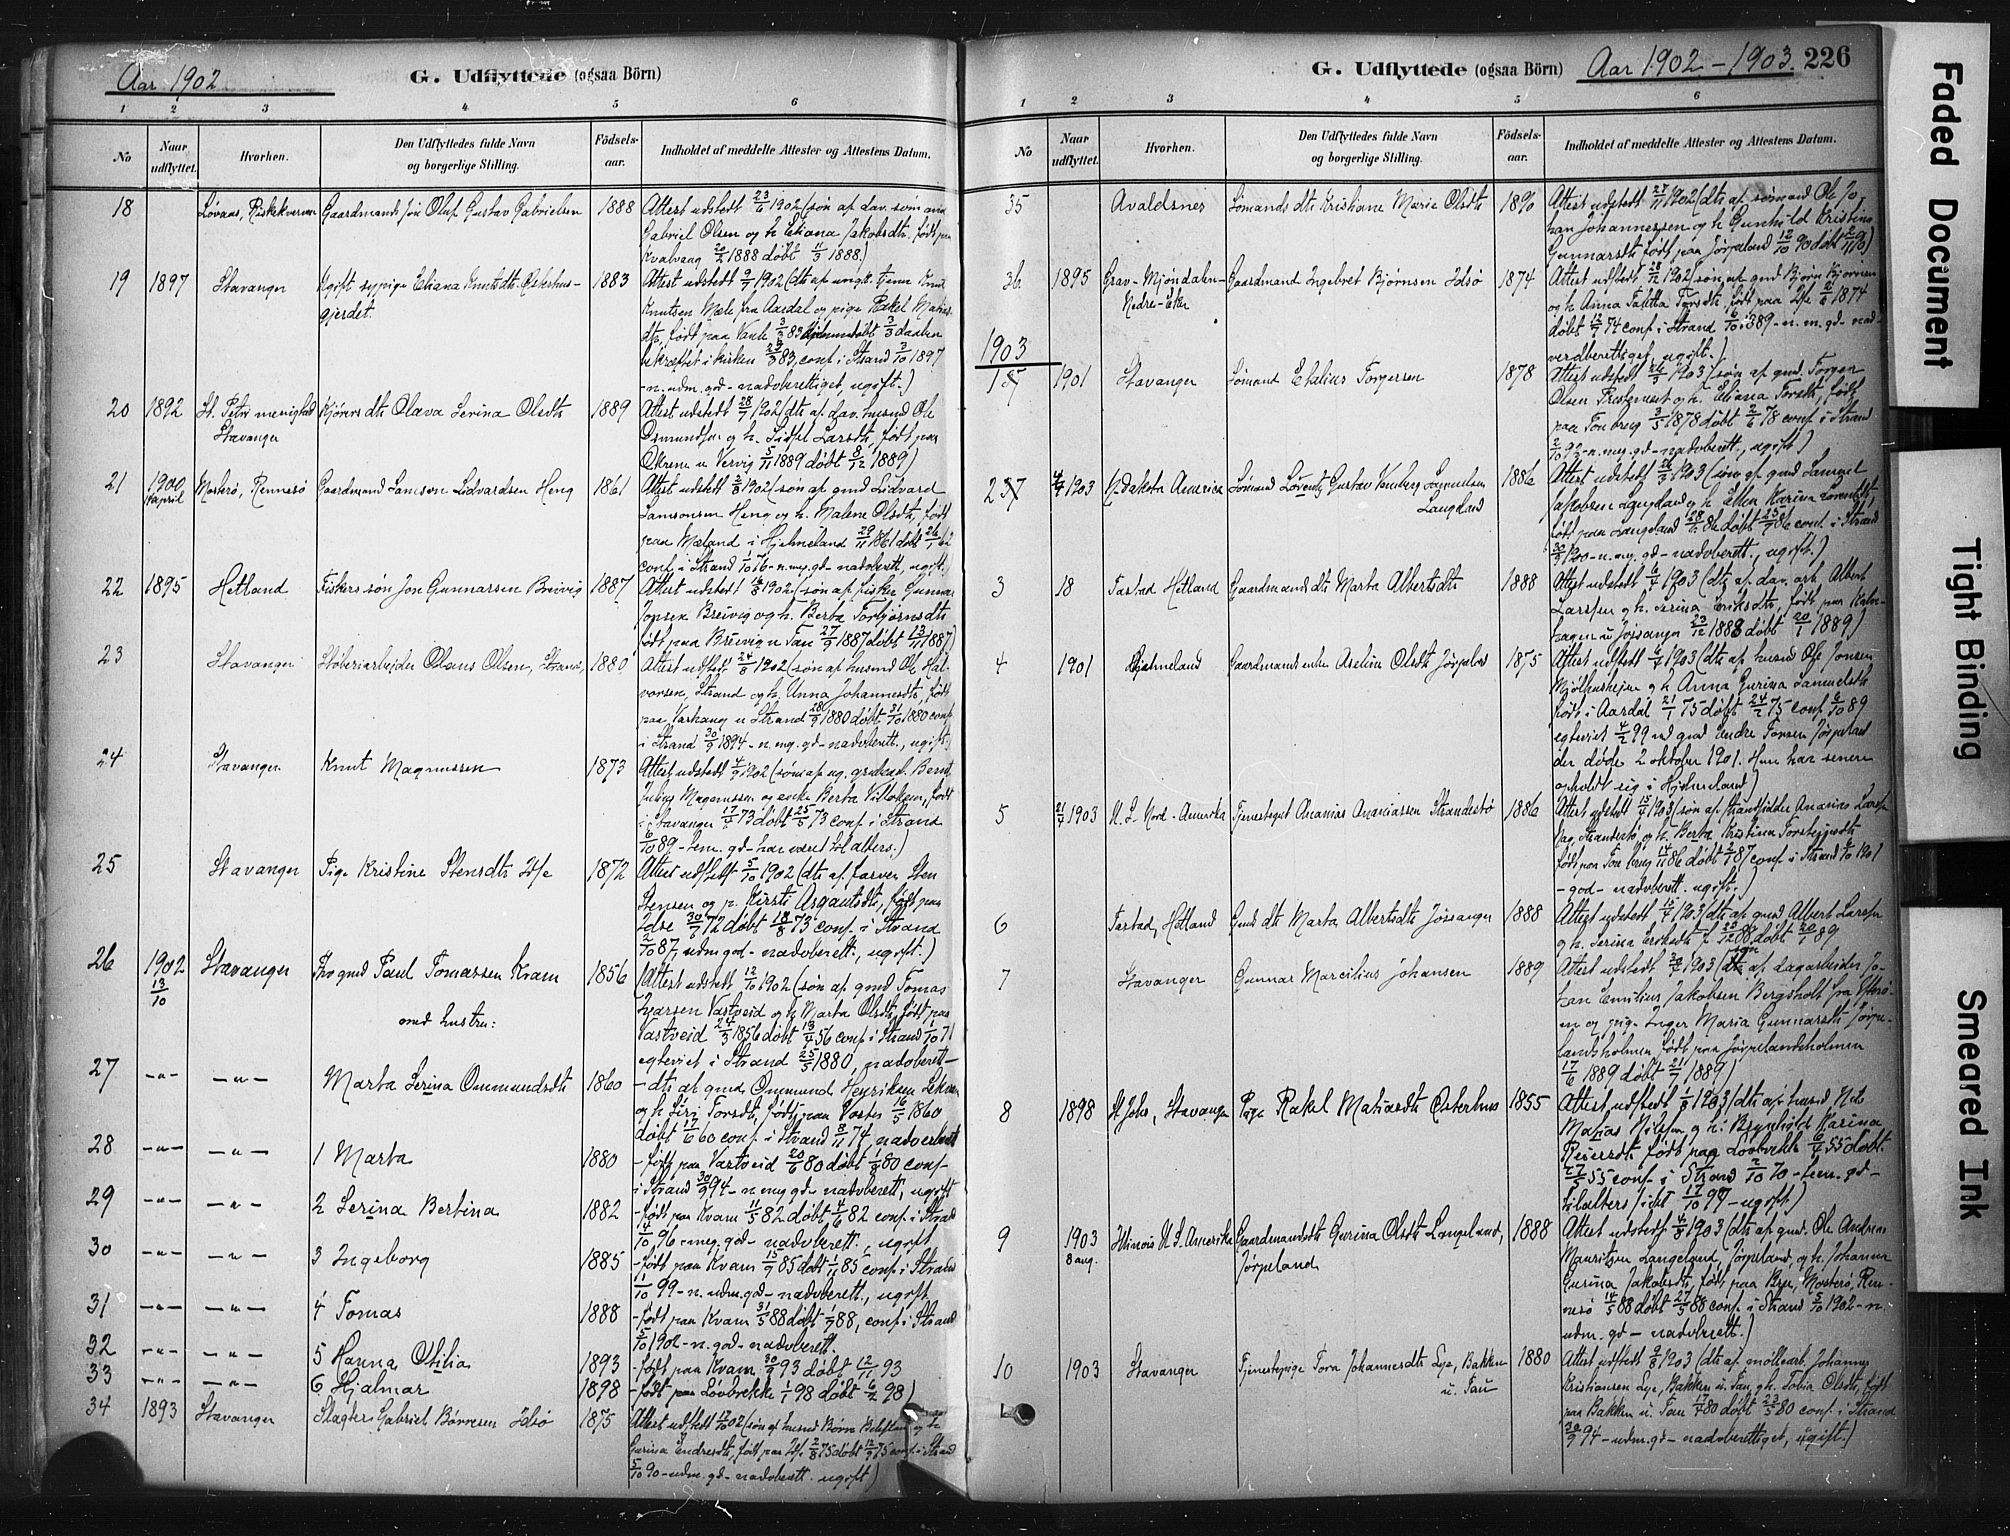 Aar 1902
G. Udflyttede (ogsaa Börn)
1 2 3 4 5 6
No
Naar udflyttet.
Hvorhen.
Den Udflyttedes fulde Navn
og borgerlige Stilling.
Födsels-
aar.
Indholdet af meddelte Attester og Attestens Datum.
18 Løvaas, Gaardmands søn Oluf Gustav Gabrielsen 1888 Attest udstedt 23/6 1902 (søn af dav.
Gabriel Olsen og h. Eliana Jakobsdtr. født paa
1888 døbt 11/3 1888.)
19 1897 Stavanger Ugift sypige Eliana Knutsdtr. Østerhus- 1883 Attest udstedt 9/7 1902 (dtr af ungk. tjener Knut
gjerdet. Knutsen Mæle fra Aardal og pige Rakel Matias-
dtr, født paa
bekræftet i kirken 83, conf. i Strand 3/10 1897
- n. udm. gd - nadverberettiget, ugift.)
20 1892 St. Petri menighed Olava Serina Olsdtr 1889 Attest udstedt 28/7 1902 (dtr af dav. husmd Ole
Stavanger Osmundsen og h. Sidsel Larsdtr, født paa
5/11 1889 døbt 8/12 1889)
21 1900 Mosterø, Rennesø Gaardmand Samson Sidvardsen Heng 1861 Attest udstedt 2/8 1902 (søn af gmd Sidvard
april Samsonsen Heng og h. Malene Olsdtr, født
paa Mæland i Hjelmeland 29/11 1861 døbt 26/1 62
conf. i Strand 1/10 76 - n. mg. gd - nadverberett., ugift.
22 1895 Hetland Fiskers søn Jon Gunnarsen Breivig 1887 Attest udstedt 18/8 1902 (søn af fisker Gunnar
Jonsen Breivig og h. Berta Torbjørnsdtr
født paa Breivig u Tau 27/9 1887 døbt 13/11 1887)
23 Stavanger Støberiarbeider Olaus Olsen, Strand, 1880 Attest udstedt 24/8 1902 (søn af husmd Ole Hal-
vorsen, Strand og h. Anna Johannesdtr, født
paa Varhaug u Strand 28/9 1880 døbt 31/10 1880 conf.
i Strand 30/9 1894 - n. mg. gd - nadverberett., ugift.)
24 Stavanger Knut Magnussen 1873 Attest udstedt 4/9 1902 (søn af ug. Bernt
Julius Magnussen og enke Berta født
i Stavanger 17/4 73 døbt 25/5 73 conf. i Strand
6/10 89 - gd - har været til alters.)
25 Stavanger Pige Kristine Stensdtr Idse 1872 Attest udstedt 5/10 1902 (dtr af farver Sten
Stensen og p. Kirsti Asgautsdtr, født paa
Idse 30/7 72 døbt 18/8 73 conf. i Strand
2/10 87, udm god - nadverberett., ugift.)
26 1902 Stavanger Fhv gmd Paul Tomassen Kvam 1856 Attest udstedt 12/10 1902 (søn af gmd Tomas
13/10 Ivarsen Vastveid og h. Marta Olsdtr, født paa
med hustru: Vastveid 24/3 1856 døbt 13/4 56 conf. i Strand 1/10 71
egteviet i Strand 25/5 1880, nadverberett -
27 -"- -"- Marta Serina Ommundsdtr 1860 - dtr af gmd Ommund Henriksen
og h Siri Torsdtr, født paa Vostes 16/5 1860
døbt 17/6 60 conf. i Strand 8/11 74, nadverberett
28 -"- -"- 1 Marta 1880 - født paa Vastveid 20/6 80 døbt 1/8 80 conf.
i Strand 30/9 94 - n mg gd - nadverberett., ugift
29 -"- -"- 2 Serina Bertina 1882 - født paa Kvam 11/5 82 døbt 4/6 82 conf. i Strand
4/10 96 - mg. gd - nadverberett., ugift
30 -"- -"- 3 Ingeborg 1885 - født paa Kvam 15/9 85 døbt 1/11 85 conf. i Strand
1/10 99 - n. udm. gd - nadverberett., ugift
31 -"- -"- 4 Tomas 1888 - født paa Kvam 31/5 88 døbt 1/7 88, conf. i Strand
5/10 1902 - n. gd - nadverberett.
32 -"- -"- 5 Hanna Otilia 1893 - født paa Kvam 30/9 93 døbt 12/11 93
33 -"- -"- 6 Hjalmar 1898 - født paa Løvbrekke 1/1 98 døbt 6/2 98)
34 1893 Stavanger Slagter Gabriel Børresen Idsø 1875 Attest udstedt 17/10 02 (søn af husmd Børre
Gurina Endresdtr, født paa Idse 2/8 75 døbt 12/9 75 conf. i Strand
5/10 90 - udm. gd - nadverberett. ugift)
G. Udflyttede (ogsaa Börn)
Aar 1902 - 1903. 226
1 2 3 4 5 6
No
Naar
udflyttet.
Hvorhen.
Den Udflyttedes fulde Navn
og borgerlige Stilling.
Födsels-
aar.
Indholdet af meddelte Attester og Attestens Datum.
35 Avaldsnes Sømands dtr Kristiane Marie Olsdtr 1890 Attest udstedt 27/11 1902 (dtr af sømand Ole Jo-
han Johannessen og h Gunhild Kristine
Gunnarsdtr født paa Jørpeland 12/10 90 døbt 2/11 90)
36 1895 Grav - Mjøndalen - Gaardmand Ingebret Bjørnsen Idsø 1874 Attest udstedt 28/12 1902 (søn af gmd Bjørn Bjørnsen
Nedre-Eker og h Anna Talitta Torsdtr, født paa Idse 1874
døbt 12/7 74 conf. i Strand 6/10 1889 - n. m. gd - nad-
verdberettiget, ugift.)
1903
1 1901 Stavanger Sømand Etalius Torgersen 1878 Attest udstedt 26/3 1903 (søn af gmd Torger
Olsen og h. Eliana født
paa 3/5 1878 døbt 2/6 78 conf. i Strand
2/10 92 - n. mg. gd - nadverberett., ugift)
2 4/4 1903 N. Dakota America Sømand Lorents Gustav Samuelsen 1886 Attest udstedt 26/3 1903 (søn af gmd Samuel
Langeland Jakobsen Langeland og h. Ellen Karina Lorentsdtr,
født paa Langeland 28/6 86 døbt 25/7 86 conf. i Strand
30/9 1900 - n. mg. gd - nadverberett., ugift.)
3 18 Tastad Hetland Gaardmands dtr Marta Albertsdtr 1888 Attest udstedt 6/4 1903 (dtr af dav. arb Albert
Larsen og h. Serina Eriksdtr, født paa
hagen u Jøssanger 23/12 1888 døbt 20/1 1889)
4 1901 Hjelmeland Gaardmands enke Aselina Olsdtr Jørpeland 1875 Attest udstedt 6/4 1903 (dtr af husmd Ole Jonsen
og h Anna Gurina Samuelsdtr
født i Aardal 21/1 75 døbt 24/2 75 conf 6/10 89
egteviet 4/2 99 med gmd Endre Tonsen Jørpeland
der døde 2 oktober 1901. Hun har senere
opholdt sig i Hjelmeland)
5 21/4 1903 U. S. Nord-Amerika Tjenestegut Ananias Ananiassen Strandestø 1886 Attest udstedt 15/4 1903 (søn af strandsidder Ananias Larsen
Strandestø og h. Berta Kristina Torsteinsdtr
født paa Tau 14/11 86 døbt 87 conf i Strand 6/10 1901
- god - nadverberett. ugift.)
6 Tastad, Hetland Gmds dtr Marta Albertsdtr Jøssanger 1888 Attest udstedt 15/4 1903 (dtr af gmd Albert Larsen
og h. Serina Eriksdtr f. 23/12 88 døbt 20/1 89
7 Stavanger Gunnar Marcilius Johansen 1889 Attest udstedt 1903 (søn af dagarbeider Jo-
han Emilius Jakobsen Bergsholt fra
en og pige Inger Maria Gunnarsdtr Jørpe-
landsholmen født paa Jørpelandsholmen
17/6 1889 døbt 21/7 1889)
8 1898 St Johs, Stavanger Pige Rakel Matiasdtr Østerhus 1855 Attest udstedt 1/8 1903 (dtr af husmd Nils
Matias Nilsen og h. Brynhild Karina
født paa Løvbrekke 6/4 55 døbt
27/5 55 conf. i Strand 2/10 70 - gd -
tilalters sidst 17/10 97 - ugift)
9 1903 Illinois U.S. Amerika Gaardmandsdtr Gurina Olsdtr Langeland, 1888 Attest udstedt 4/8 1903 (dtr af gmd. Ole Andreas
8 aug. Jørpeland Mauritsen Langeland, Jørpeland, og h. Johanna
Gurina Jakobsdtr, født paa Bru, Mosterø, Ren-
nesø 14/5 88 døbt 27/5 88 conf. i Strand 5/10 1902 - n.
udm. gd - nadverberett.)
10 1903 Stavanger Tjenestepige Tora Johannesdtr Lye, Bakken 1880 Attest udstedt 9/8 1903 (dtr af møllearb. Johannes
u. Tau Kristiansen Lye, Bakken u. Tau og h. Tobia Olsdtr, født
paa Bakken u. Tau 17/4 80 døbt 23/5 80 conf. i Strand
30/9 94 - udm. gd - nadverberettiget, ugift.)
Faded Document
Tight Binding
Smeared Ink